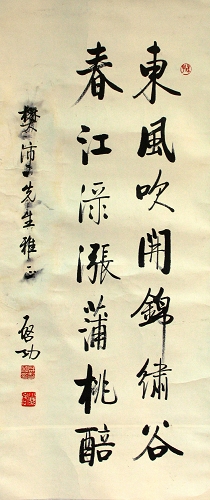 東風吹開錦繡谷
春江渌漲蒲桃醅
樊沛先生雅正
啓功